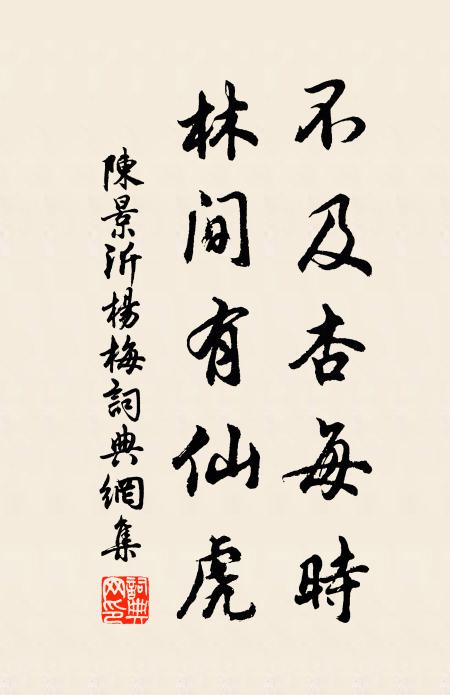 不及杏每時
林间有仙虎
陳景沂楊梅詞典網集
詞典网印